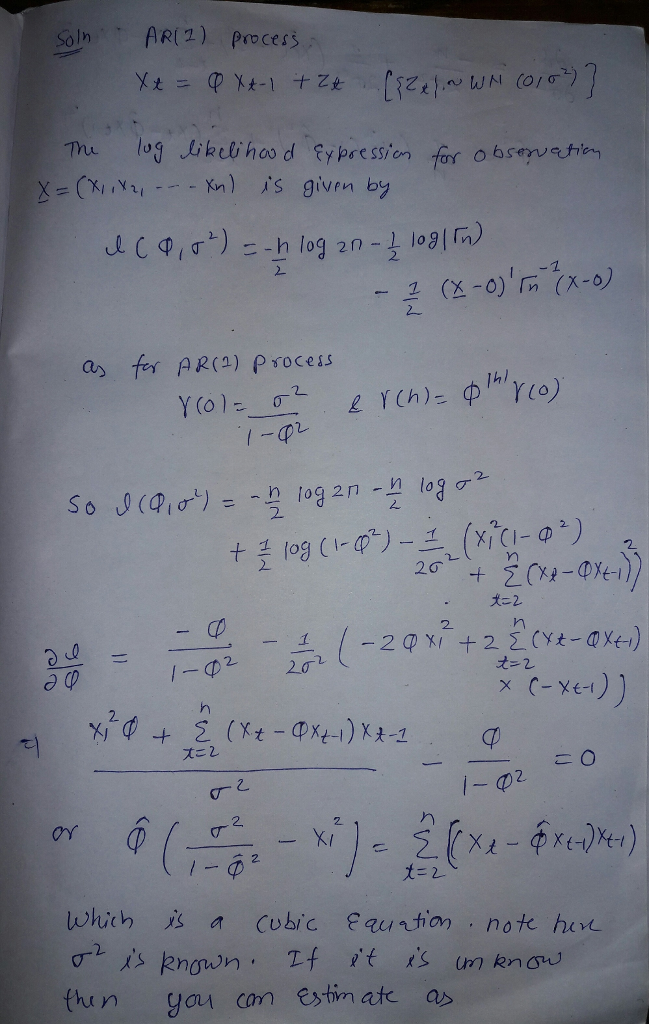 Soln AR(1) process
Xt = φ Xt-1 + Zt [{Zt} ~ WN (0,σ²)]
The log likelihood Expression for observation
X = (X1, X2, --- Xn) is given by
l(φ,σ²) = -n/2 log 2π - 1/2 log|Γn|
- 1/2 (X-0)' Γn⁻¹ (X-0)
as for AR(1) process
γ(0) = σ²/(1-φ²) & γ(h) = φ^|h| γ(0)
So l(φ,σ²) = -n/2 log 2π - n/2 log σ²
+ 1/2 log(1-φ²) - 1/2σ² (X1²(1-φ²)
+ Σ_{t=2}^{n} (Xt - φXt-1)²)
∂l/∂φ = -φ/(1-φ²) - 1/2σ² (-2φX1² + 2 Σ_{t=2}^{n} (Xt - φXt-1)
× (-Xt-1))
⇒ (X1²φ + Σ_{t=2}^{n} (Xt - φXt-1)Xt-1)/σ² - φ/(1-φ²) = 0
or φ̂ (σ²/(1-φ̂²) - X1²) = Σ_{t=2}^{n} ((Xt - φ̂Xt-1)Xt-1)
Which is a cubic Equation. note here
σ² is known. If it is unknow
then you can Estimate as